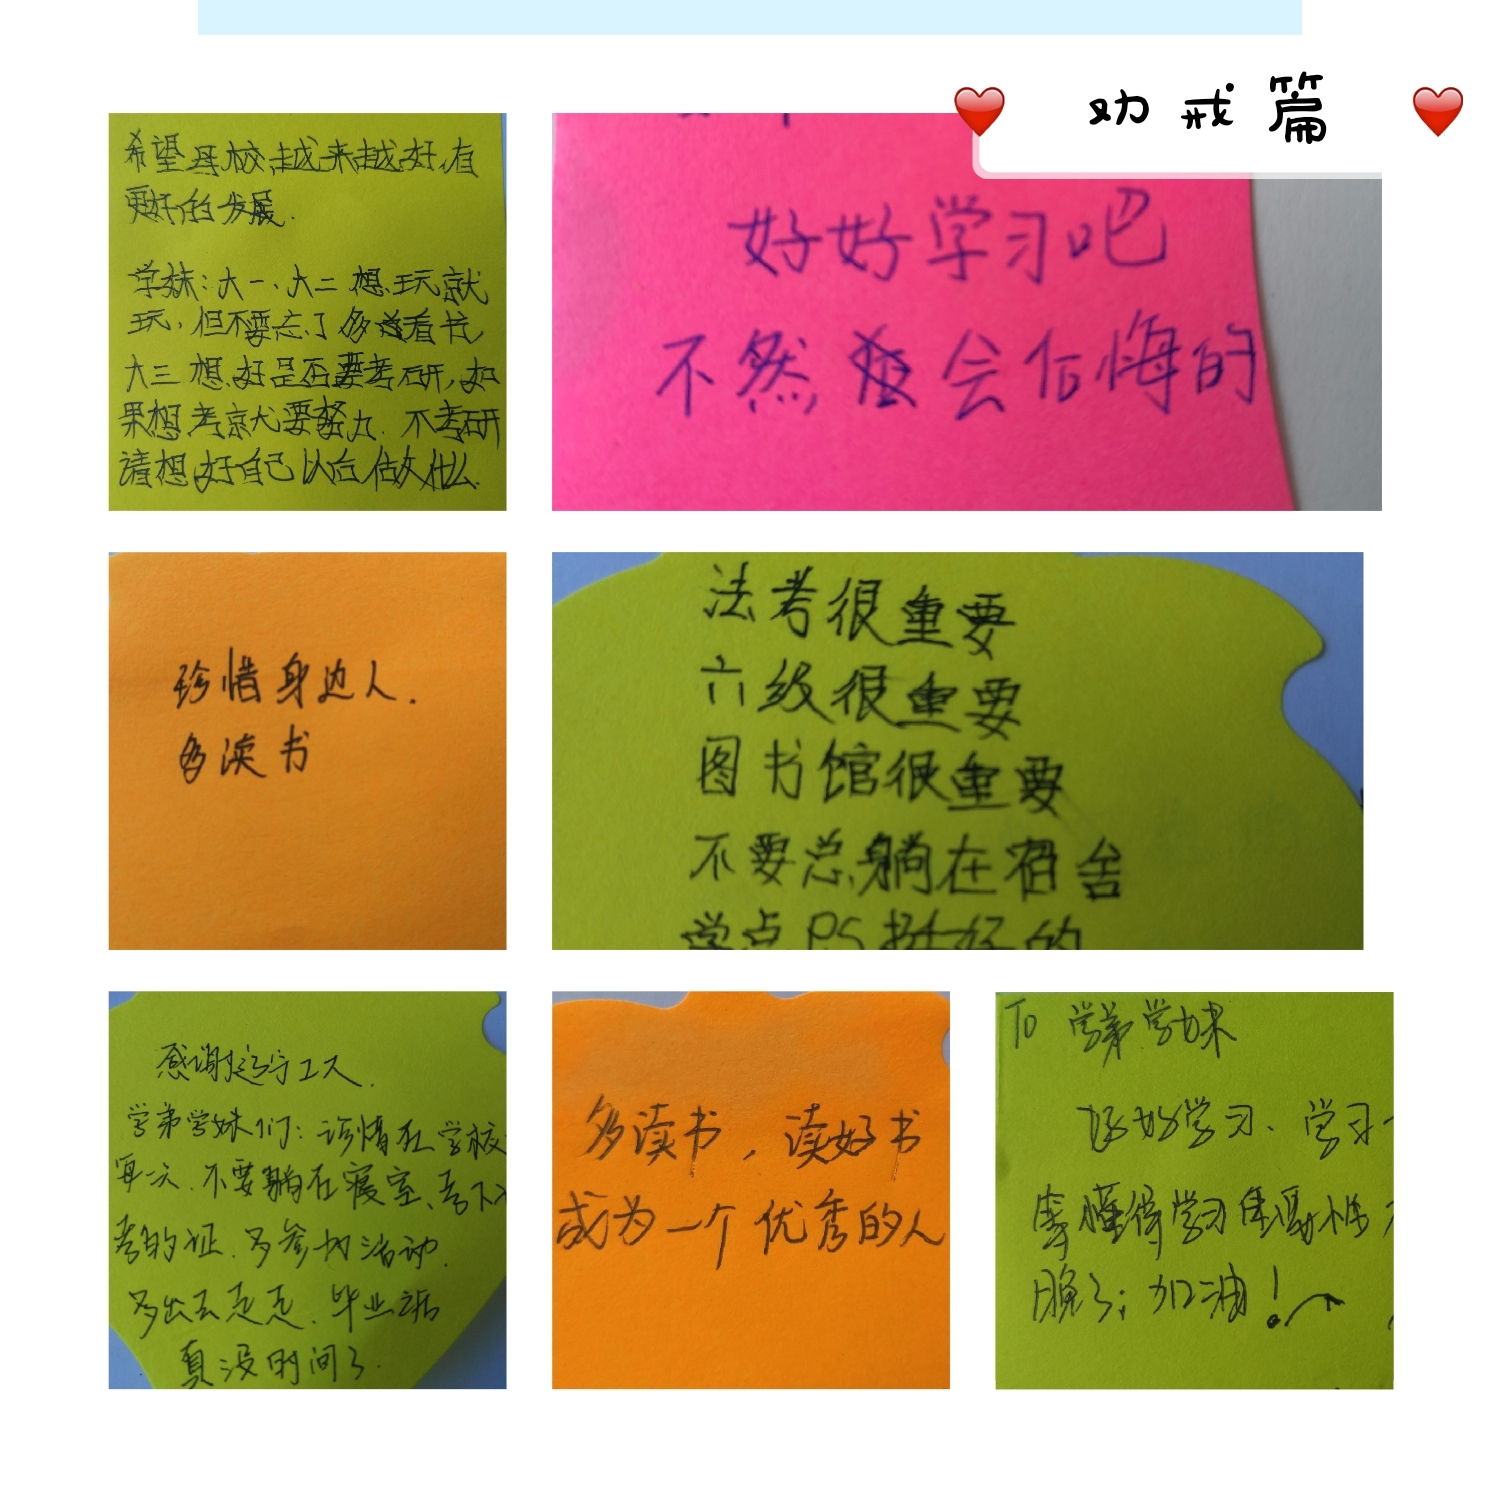 劝戒篇
希望母校越来越好,有
更好的发展.
学妹:大一、大二想玩就
玩,但不要忘了多看书,
大三想好是否要考研,如
果想考就要努力.不考研
请想好自己以后做什么.
好好学习吧
不然会后悔的
珍惜身边人.
多读书
法考很重要
六级很重要
图书馆很重要
不要总躺在宿舍
学点PS挺好的
感谢辽宁工大.
学弟学妹们:珍惜在学校
每一天.不要躺在寝室、考下
考的证.多参加活动.
多出去走走.毕业后
真没时间了.
多读书,读好书
成为一个优秀的人
To 学弟学妹
好好学习、学习
懂得学习重要性
晚了;加油!